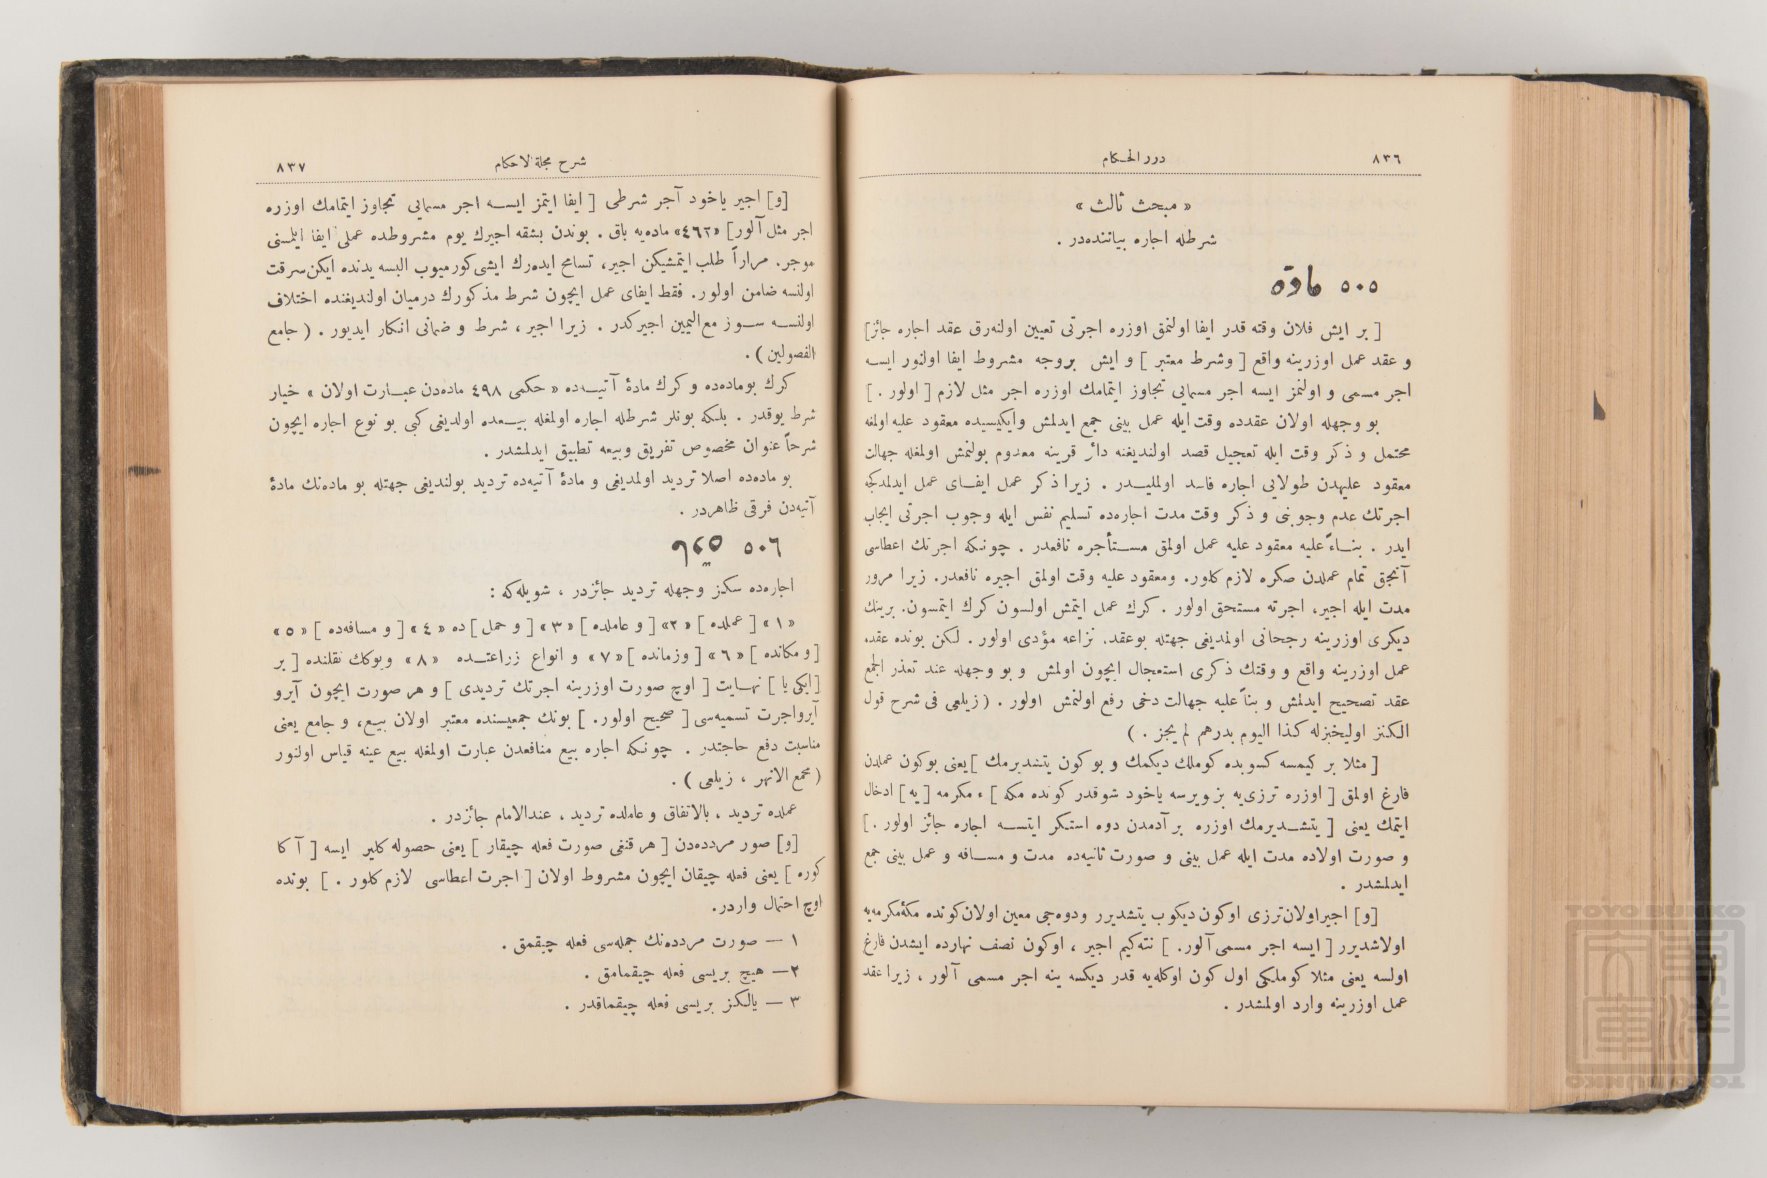 ٨٣٦
درر الحكام
« مبحث ثالث »
شرطله اجاره بیاننده‌در .
٥٠٥ ماده
[ بر ایش فلان وقته قدر ایفا اولنمق اوزره اجرتی تعیین اولنه‌رق عقد اجاره جائز]
و عقد عمل اوزرینه واقع [ وشرط معتبر ] و ایش بروجه مشروط ایفا اولنور ایسه
اجر مسمی و اولنمز ایسه اجر مسمایی تجاوز ایتمامك اوزره اجر مثل لازم [ اولور . ]
بو وجهله اولان عقدده وقت ایله عمل بینی جمع ایدلمش وایكیسیده معقود علیه اولمغه
محتمل و ذكر وقت ایله تعجیل قصد اولندیغنه دائر قرینه معدوم بولنمش اولمغله جهالت
معقود علیهدن طولایی اجاره فاسد اولملیدر . زیرا ذكر عمل ایفای عمل ایدلمدكجه
اجرتك عدم وجوبنی و ذكر وقت مدت اجاره‌ده تسلیم نفس ایله وجوب اجرتی ایجاب
ایدر . بناءً علیه معقود علیه عمل اولمق مستأجره نافعدر . چونكه اجرتك اعطاسی
آنجق تمام عملدن صكره لازم كلور. ومعقود علیه وقت اولمق اجیره نافعدر. زیرا مرور
مدت ایله اجیر، اجرته مستحق اولور . كرك عمل ایتمش اولسون كرك ایتمسون. برینك
دیكری اوزرینه رجحانی اولمدیغی جهتله بوعقد، نزاعه مؤدی اولور . لكن بونده عقد،
عمل اوزرینه واقع و وقتك ذكری استعجال ایچون اولمش و بو وجهله عند تعذر الجمع
عقد تصحیح ایدلمش و بناً علیه جهالت دخی رفع اولنمش اولور . ( زیلعی فی شرح قول
الكنز اولیخبزله كذا الیوم بدرهم لم یجز . )
[ مثلا بر كیمسه كسوبده كوملك دیكمك و بوكون یتشدیرمك ] یعنی بوكون عملدن
فارغ اولمق [ اوزره ترزی‌یه بز ویرسه یاخود شوقدر كونده مكه ] ء مكرمه [ یه ] ادخال
ایتمك یعنی [ یتشدیرمك اوزره بر آدمدن دوه استكر ایتسه اجاره جائز اولور . ]
و صورت اولاده مدت ایله عمل بینی و صورت ثانیه‌ده مدت و مسافه و عمل بینی جمع
ایدلمشدر .
[و] اجیر اولان ترزی اوكون دیكوب یتشدیرر ودوه‌جی معین اولان كونده مكهٔ مكرمه‌یه
اولاشدیرر [ ایسه اجر مسمی آلور. ] نته‌كیم اجیر ، اوكون نصف نهارده ایشدن فارغ
اولسه یعنی مثلا كوملیكی اول كون اوكله‌یه قدر دیكسه ینه اجر مسمی آلور ، زیرا عقد
عمل اوزرینه وارد اولمشدر .
شرح مجلة الاحكام
٨٣٧
[و] اجیر یاخود آجر شرطی [ ایفا ایتمز ایسه اجر مسمایی تجاوز ایتمامك اوزره
اجر مثل آلور] «٤٦٢» ماده‌یه باق . بوندن بشقه اجیرك یوم مشروطده عملی ایفا ایلمسنی
موجر. مراراً طلب ایتمشیكن اجیر، تسامح ایده‌رك ایشی كورمیوب البسه یدنده ایكن سرقت
اولنسه ضامن اولور. فقط ایفای عمل ایچون شرط مذكورك درمیان اولندیغنده اختلاف
اولنسه سوز مع الیمین اجیركدر . زیرا اجیر ، شرط و ضمانی انكار ایدیور . ( جامع
الفصولین ) .
كرك بوماده‌ده و كرك مادهٔ آتیه‌ده « حكمی ٤٩٨ ماده‌دن عبارت اولان » خیار
شرط یوقدر . بلكه بونلر شرطله اجاره اولمغله بیعده اولدیغی كبی بو نوع اجاره ایچون
شرحاً عنوان مخصوص تفریق وبیعه تطبیق ایدلمشدر .
بو ماده‌ده اصلا تردید اولمدیغی و مادهٔ آتیه‌ده تردید بولندیغی جهتله بو ماده‌نك مادهٔ
آتیه‌دن فرقی ظاهردر .
٥٠٦
اجاره‌ده سكز وجهله تردید جائزدر ، شویله‌كه :
« ١ » [ عملده ] « ٢ » [ و عاملده ] « ٣ » [ و حمل ] ده « ٤ » [ و مسافه‌ده ] « ٥ »
[ و مكانده ] « ٦ » [ وزمانده ] « ٧ » و انواع زراعتده « ٨ » ویوكك نقلنده [ بر
[ایكی یا ] نهایت [ اوچ صورت اوزرینه اجرتك تردیدی ] و هر صورت ایچون آیرو
آیرواجرت تسمیه‌سی [ صحیح اولور. ] بونك جمعیسنده معتبر اولان بیع، و جامع یعنی
مناسبت دفع حاجتدر . چونكه اجاره بیع منافعدن عبارت اولمغله بیع عینه قیاس اولنور
( مجمع الانهر ، زیلعی ) .
عملده تردید ، بالاتفاق و عاملده تردید ، عندالامام جائزدر .
[و] صور مردده‌دن [ هر قنغی صورت فعله چیقار ] یعنی حصوله كلیر ایسه [ آ كا
كوره ] یعنی فعله چیقان ایچون مشروط اولان [ اجرت اعطاسی لازم كلور . ] بونده
اوچ احتمال واردر.
١ — صورت مردده‌نك جمله‌سی فعله چیقمق .
٢— هیچ بریسی فعله چیقمامق .
٣ — یالكز بریسی فعله چیقماقدر .
TOYO BUNKO